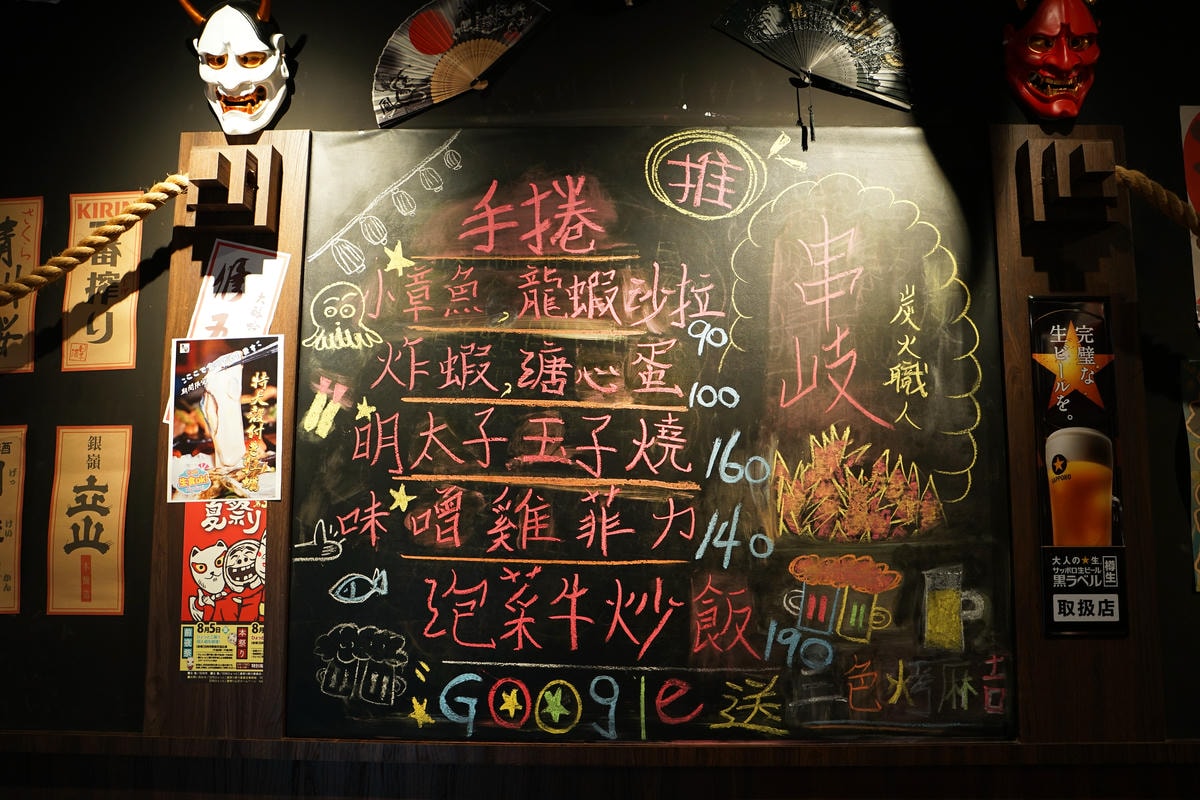 推
手捲
小章魚、龍蝦沙拉 90
炸蝦、溏心蛋 100
明太子玉子燒 160
味噌雞菲力 140
泡菜牛炒飯 190
Google送
三色烤麻吉
串岐
炭火職人
KIRIN
一番搾り
銀嶺
立山
さくら
特大殻付き
生食ok!
夏祭り
8月5日
本祭り
8月
完璧な
生ビールを。
SAPPORO
大人の★生。
サッポロ生ビール
黒ラベル
樽生
取扱店